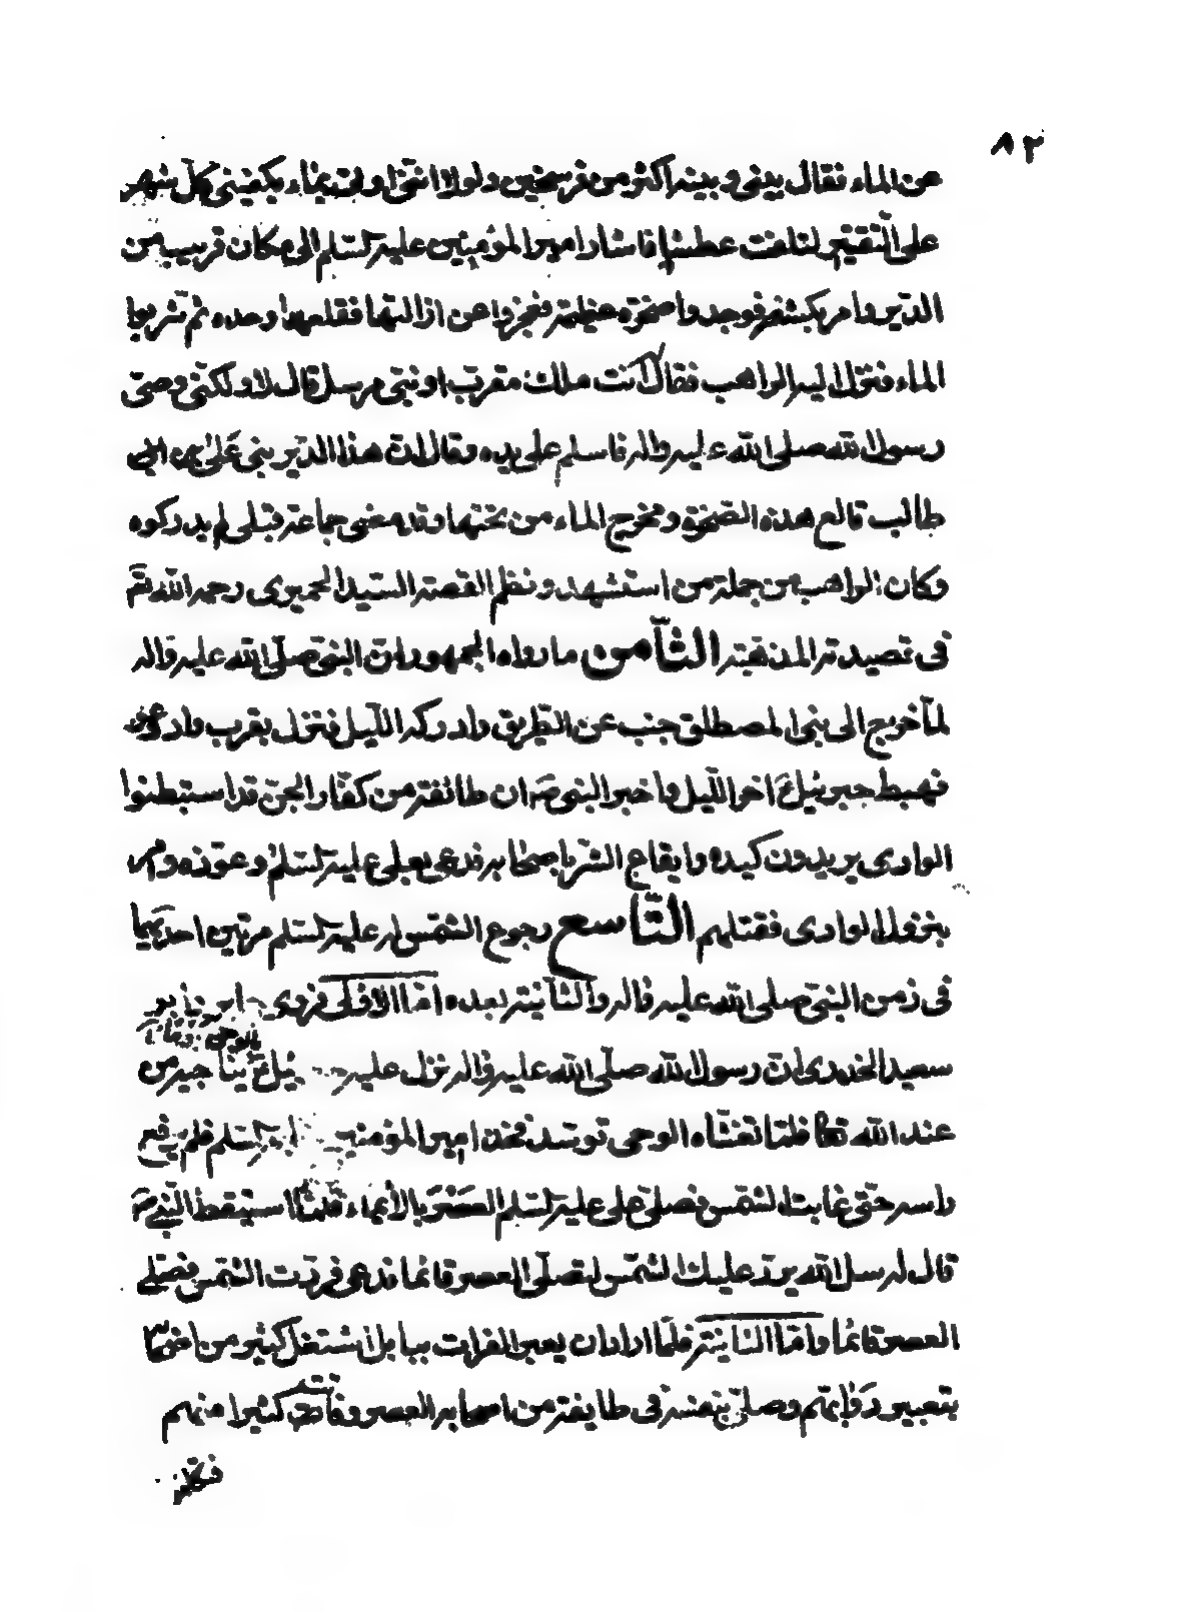 ٨٢
عن الماء فقال بيني وبينه اكثر من فرسخين ولولا انني اوتى بماء يكفيني كل شهر
على التقتير لتلفت عطشا فاشار امير المؤمنين عليه السلم الى مكان قريب من
الدير وامر بكشفه فوجدوا صخرة عظيمة فعجزوا عن ازالتها فقلعها وحده ثم شربوا
الماء فنزل اليه الراهب فقال انت ملك مقرب او نبي مرسل قال لا ولكني وصى
رسول الله صلى الله عليه واله فاسلم على يده وقال ان هذا الدير بنى على
طالب قالع هذه الصخرة ومخرج الماء من تحتها وقد مضى جماعة قبلى لم يدركوه
وكان الراهب من جملة من استشهد ونظم القصة السيد الحميرى رحمه الله تم
في قصيدته المذهبة الثامن ما رواه الجمهور ان النبي صلى الله عليه واله
لما خرج الى بني المصطلق جنب عن الطريق وادركه الليل فنزل بقرب واد وعر
فهبط جبرئيل ع اخر الليل واخبر النبي ص ان طائفة من كفار الجن قد استبطنوا
الوادى يريدون كيده وايقاع الشر باصحابه فدعى بعلى عليه السلم وعوذه وامره
بنزول الوادى فقتلهم التاسع رجوع الشمس له عليه السلم مرتين احديهما
في زمن النبي صلى الله عليه واله والثانية بعده اما الاولى فروى جابر وابو
سعيد الخدرى ان رسول الله صلى الله عليه واله نزل عليه جبرئيل ع يناجيه من
عند الله تعا فلما تغشاه الوحى توسد فخذ امير المؤمنين عليه السلم فلم يرفع
راسه حتى غابت الشمس فصلى على عليه السلم العصر بالايماء فلما استيقظ النبي ص
قال له سل الله يرد عليك الشمس لتصلى العصر قائما فدعى فردت الشمس فصلى
العصر قائما واما الثانية فلما اراد ان يعبر الفرات ببابل اشتغل كثير من اصحابه
بتعبير دوابهم وصلى بنفسه في طايفة من اصحابه العصر وفاتت كثيرا منهم